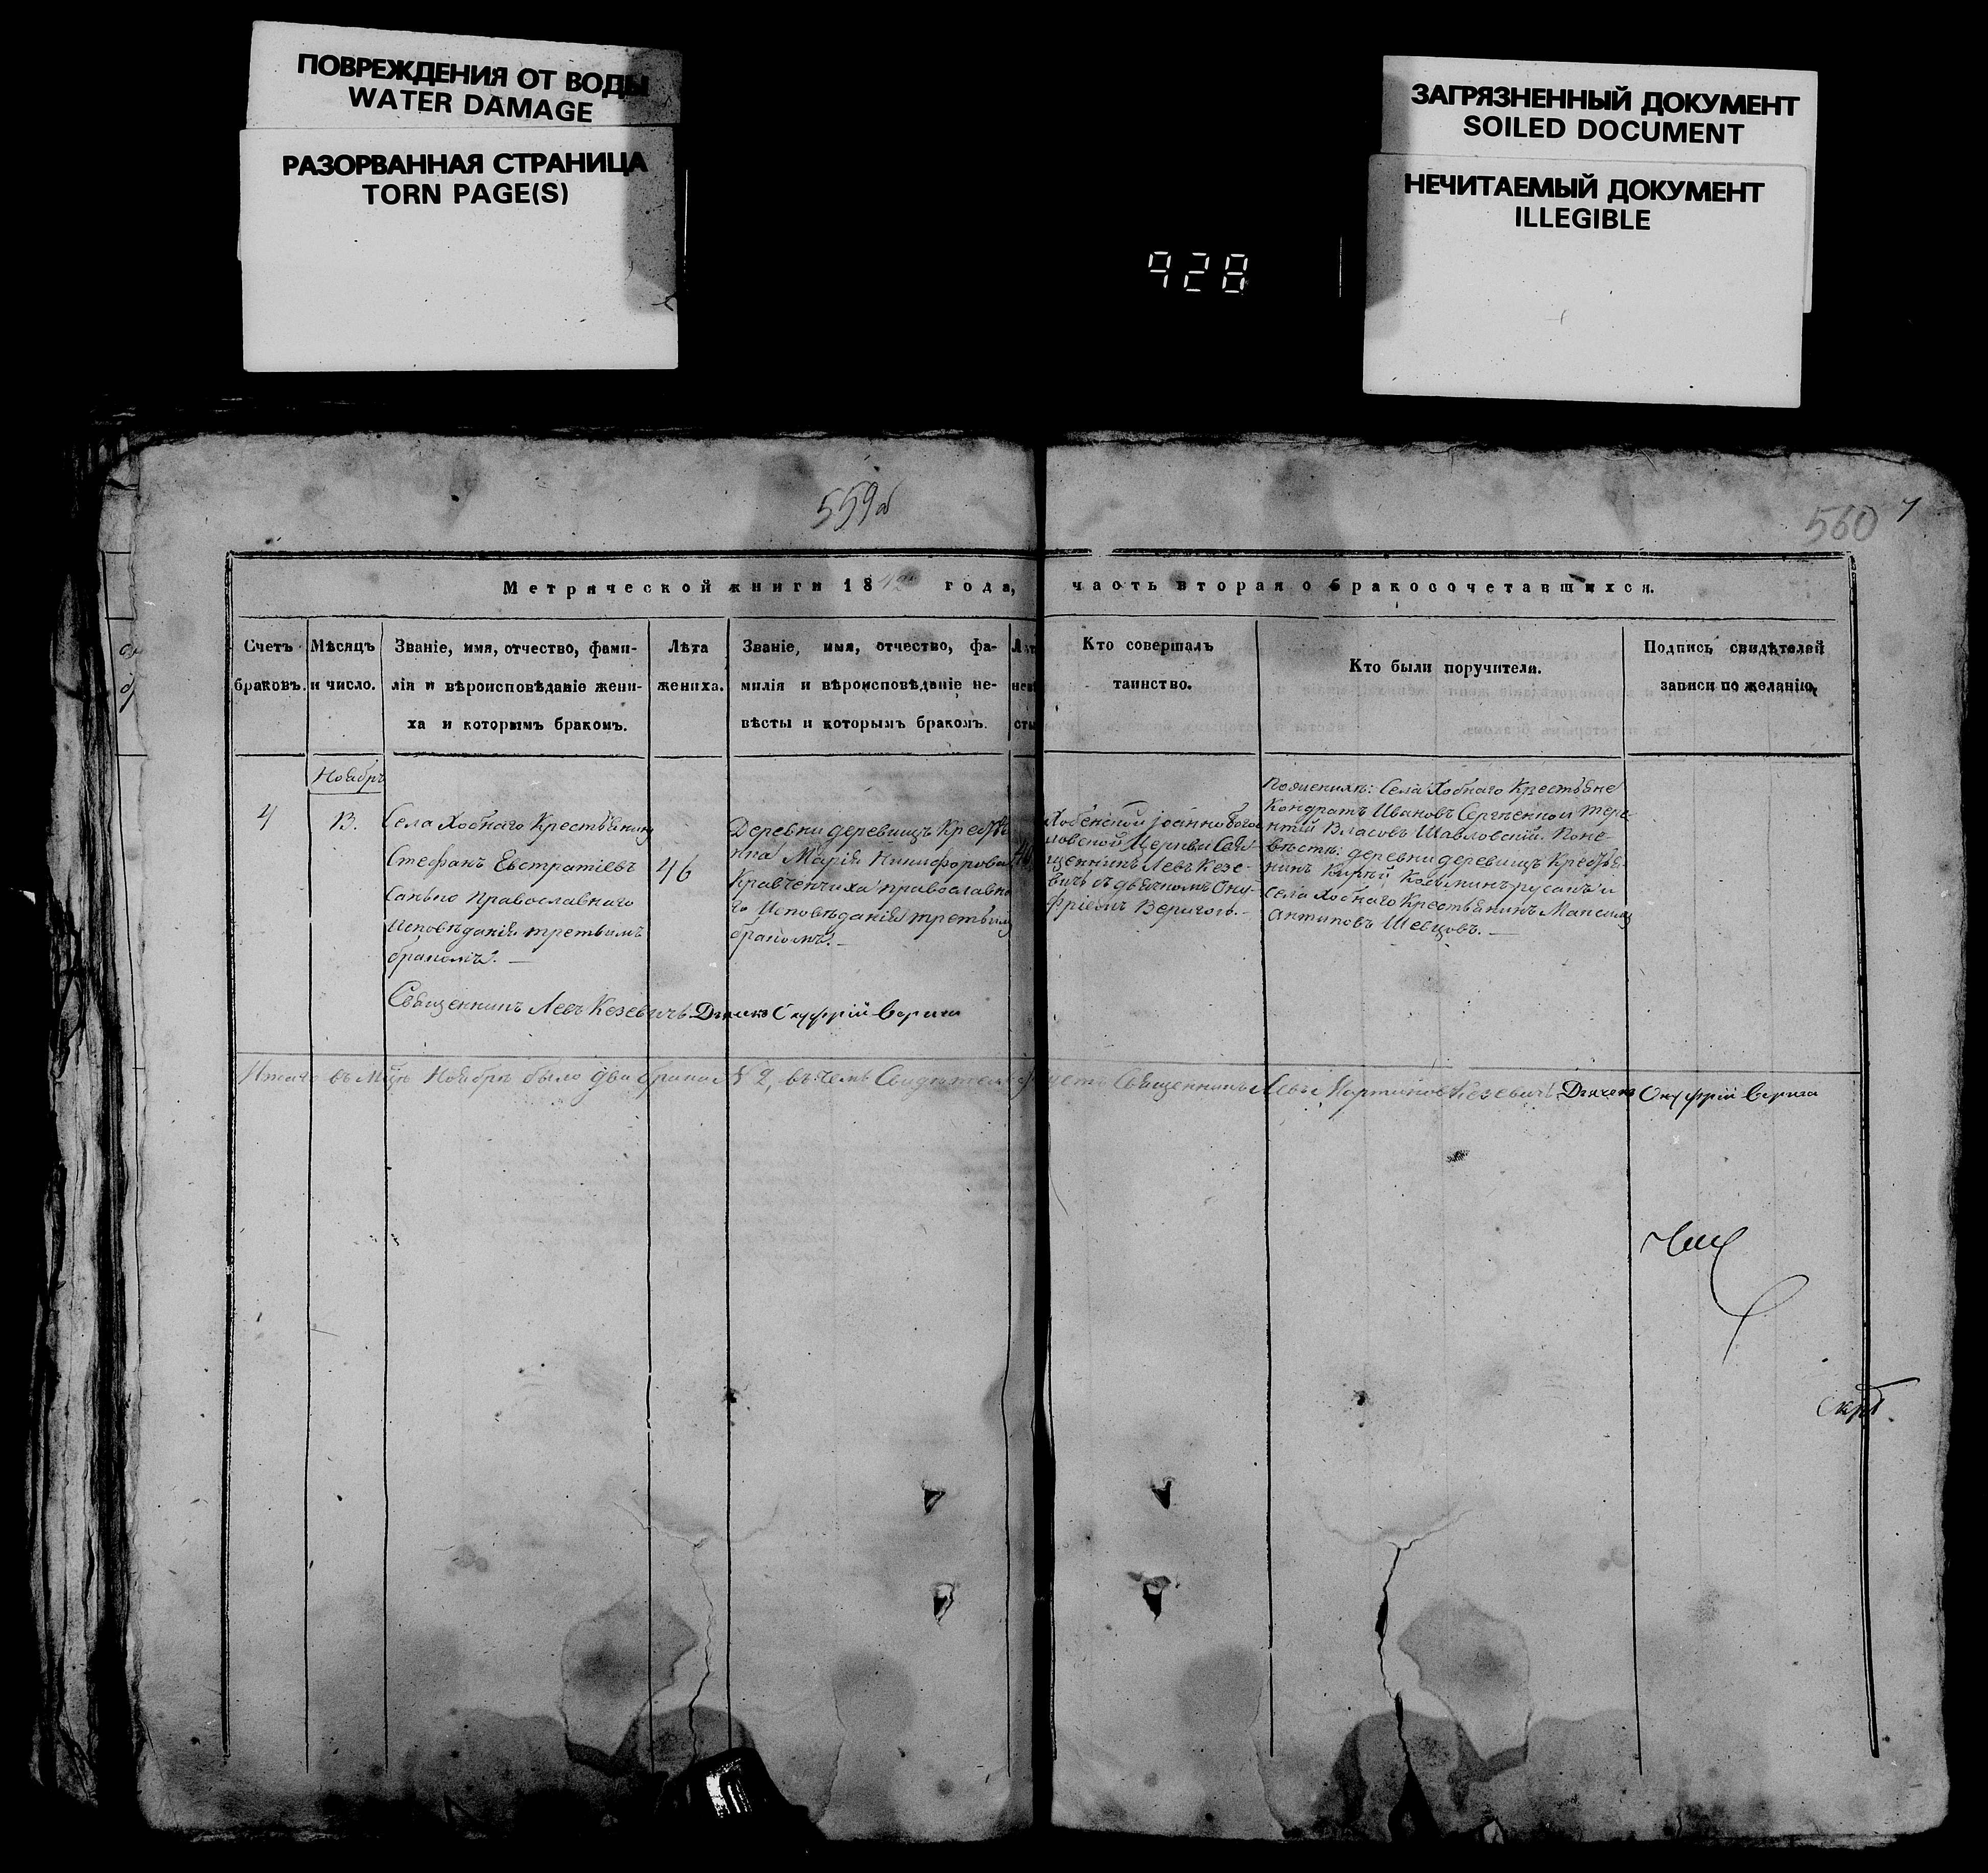 ПОВРЕЖДЕНИЯ ОТ ВОДЫ
WATER DAMAGE
РАЗОРВАННАЯ СТРАНИЦА
TORN PAGE(S)
ЗАГРЯЗНЕННЫЙ ДОКУМЕНТ
SOILED DOCUMENT
НЕЧИТАЕМЫЙ ДОКУМЕНТ
ILLEGIBLE
928
559об
560
Метрической книги 18 года, часть вторая о бракосочетавшихся.
Счетъ
браковъ.
Мѣсяцъ
и число.
Званіе, имя, отчество, фами-
лія и вѣроисповѣданіе жени-
ха и которымъ бракомъ.
Лѣта
жениха.
Званіе, имя, отчество, фа-
милія и вѣроисповѣданіе не-
вѣсты и которымъ бракомъ.
Кто совершалъ
таинство.
Кто были поручители.
Подпись свидѣтелей
записи по желанію.
Ноябрь
4
13.
Села Хобнаго Крестьянинъ
Стефанъ Евстратіевъ
Санько Православнаго
Исповѣданія третьимъ
бракомъ. —
46
Деревни деревицъ Крестья
нка Марія Никифорова
Кравченчиха православна
го Исповѣданія третьимъ
бракомъ. —
Хобенской Іоанно Бого
словской Церкви Свя-
щенникъ Левъ Кезе-
вичъ съ дьячкомъ Ону-
фріемъ Веригою. —
По женихѣ: Села Хобнаго Крестьяне
Кондратъ Ивановъ Сергѣенко и Тере
нтій Власовъ Шавловскій. По не-
вѣстѣ: деревни деревицъ Крестья
нинъ Козьминъ русанъ и
села Хобнаго Крестьянинъ Максимъ
Антиповъ Шевцовъ. —
Священникъ Левъ Кезевичъ Дьячекъ Онуфрій Верига
Итого въ Мцѣ Ноябрѣ было два брака № 2, въ чемъ Священникъ Левъ Мартиновъ Кезевичъ Дьячекъ Онуфрій Верига